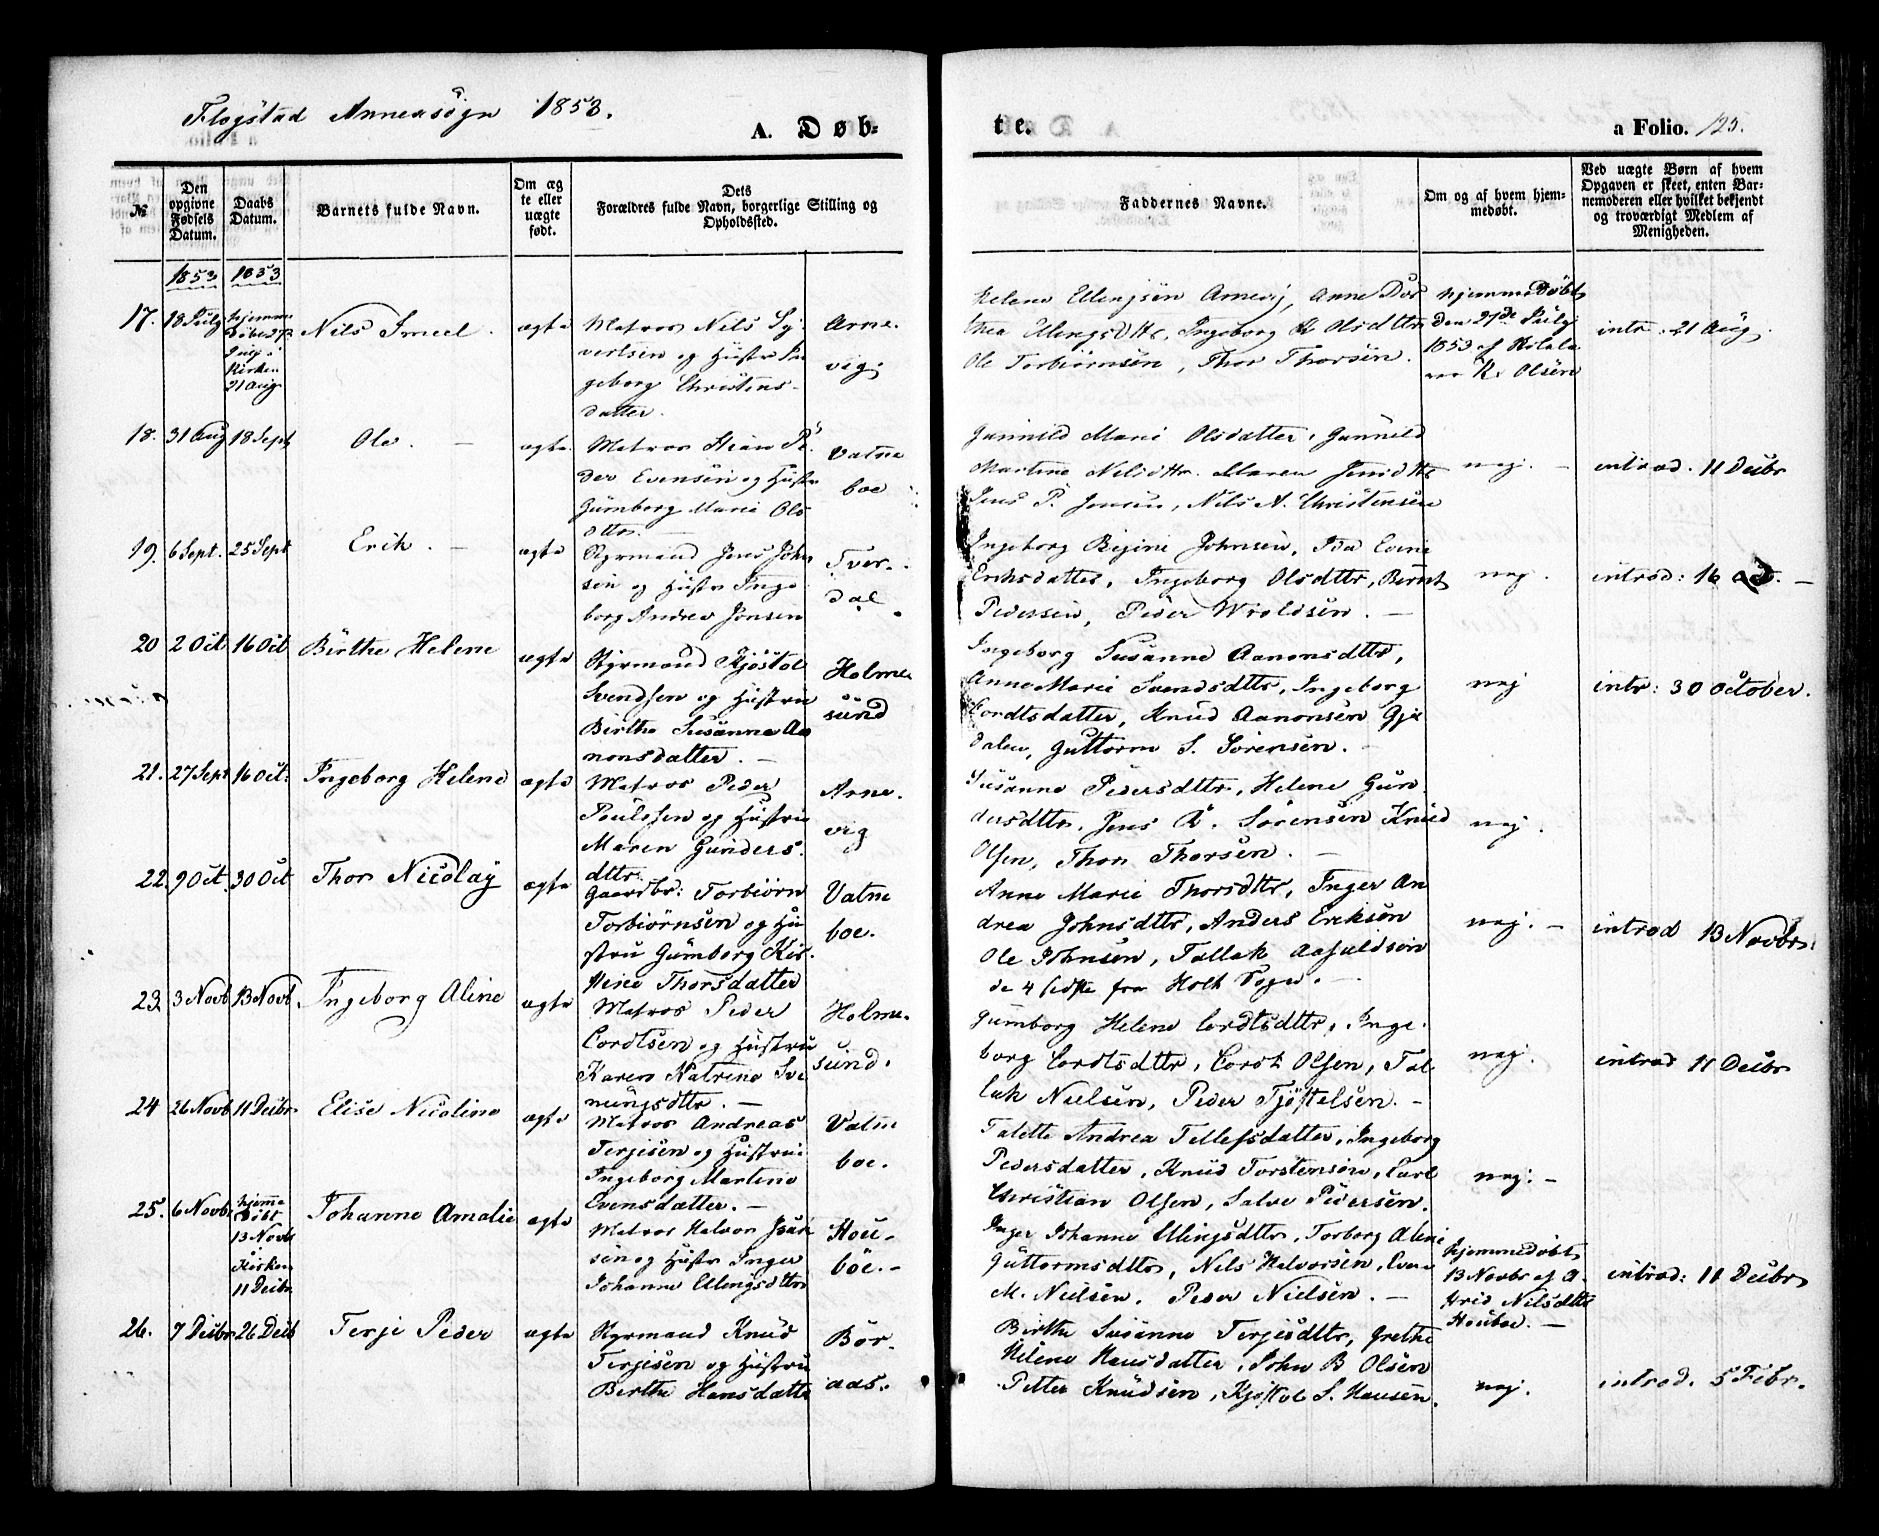 Flagstad Annexsogn 1853.
A. Døb-
te.
a Folio. 125.
№
Den opgivne Fødsels Datum.
Daabs Datum.
Barnets fulde Navn.
Om æg te eller uægte født.
Dets Forældres fulde Navn, borgerlige Stilling og Opholdssted.
Faddernes Navne.
Om og af hvem hjemmedøbt.
Ved uægte Børn af hvem Opgaven er skeet, enten Barnemoderen eller hvilket bekjendt og troværdigt Medlem af Menigheden.
1853 1853
17. 18 July
hjemme
døbt 27
July i
Kirken
21 Aug
Nils
ægte
Matros Nils Sy
vertsen og Hustr In
geborg Christens-
datter.
Arne
vig
Helene Ellingsen Arnevig, Anne Dor
thea Ellingsdttr, Ingeborg K Olsdttr
Ole Torbiörnsen, Thor Thorsen.
hjemmedöbt
den 27de July
1853 af
K. Olsen
intr: 21 Aug.
18. 31 Aug 18 Sept
Ole. -
ægte.
Matros Pe
der Evensen og Hustr
Gumborg Marie Ols
dttr.
Valne
boe
Gunnild Marie Olsdatter, Gunnild
Martine Nilsdttr. Maren Jensdttr
Jens P. Jensen, Nils N. Christensen
nej. -
introd. 11 Decbr
19. 6 Sept. 25 Sept
Erik. -
ægte
Styrmand Jens John
sen og Hustr Inge
borg Andrea Jonsen
Tver-
dal.
Ingeborg Johnsen, Ida
Eriksdatter, Ingeborg Olsdttr, Bernt
Pedersen, Peder Wroldsen. -
nej.
introd: 16 -
20 2 Oct 16 Oct
Birthe Helene
ægte
Styrmand Kjöstol
Svendsen og Hustru
Birthe Susanne Aa
nonsdatter. -
Holme
sund
Ingeborg Susanne Aanonsdttr,
Anne Marie Svendsdttr, Ingeborg
Cordtsdatter, Knud Aanonsen Gje
dalen, Guttorm S. Sörensen. -
nej
intr: 30 October.
21. 27 Sept 16 Oct:
Ingeborg Helene
ægte
Matros Peder
Poulssen og Hustru
Maren Gunders.
dttr.
Arne.
vig
Susanne Pedersdttr, Helene Gun
dersdttr, Jens A. Sörensen Knud
Olsen, Thor Thorsen. -
nej.
22. 9 Oct. 30 Oct
Thor Nicolay
ægte
Gaardbr: Torbiörn
Torbiörnsen og Hu
stru Gumborg Kir.
stine Thorsdatter
Valne
boe.
Anne Marie Thorsdttr, Inger An
drea Johnsdttr, Anders Eriksen
Ole Johnsen, Tallak Aasuldsen
de 4 sidste fra Holt Sogn. -
nej. -
introd 13 Novbr.
23. 3 Novb 13 Novb.
Ingeborg Aline
ægte
Matros Peder
Cordtsen og Hustru
Karen Katrine Sve
nungsdttr. -
Holme.
sund.
Gumborg Helene Cordtsdttr, Inge.
borg Cordtsdttr, Cordt Olsen, Tal
lak Nielsen, Peder Tjöstelsen. -
nej.
introd 11 Decbr
24 26 Novb 11 Decbr
Elise Nicoline
ægte
Matros Andreas
Terjesen og Hustru
Ingeborg Martine
Evensdatter. -
Valne
boe.
Talette Andrea Tellefsdatter, Ingeborg
Pedersdatter, Knud Torstensen, Carl
Christian Olsen, Salve Pedersen.
nej. -
25. 6 Novbr.
hjeme
döbt
13 Novb
i
Kirken
11 Decbr
Johanne Amalie
ægte
Matros Halvor Isak
sen og Hustr Inger
Johanne Ellingsdttr
Hou-
böe. -
Inger Johanne Ellingsdttr, Torborg Aline
Guttormsdttr, Nils Halvorsen, Even
M. Nielsen, Peder Nielsen. -
hjemmedöbt
13 Novbr af A.
strid Nilsdttr
Houboe. -
introd: 11 Decbr
26. 7 Decbr 26 Decb
Terje Peder
ægte
Styrmand Knud
Terjesen og Hustru
Berthe Hansdatter
Bör.
aas.
Birthe Susanne Terjesdttr, Grethe
Helene Hansdatter, John B Olsen
Petter Knudsen, Kjöstol S. Hansen.
nej.
introd. 5 Febr.